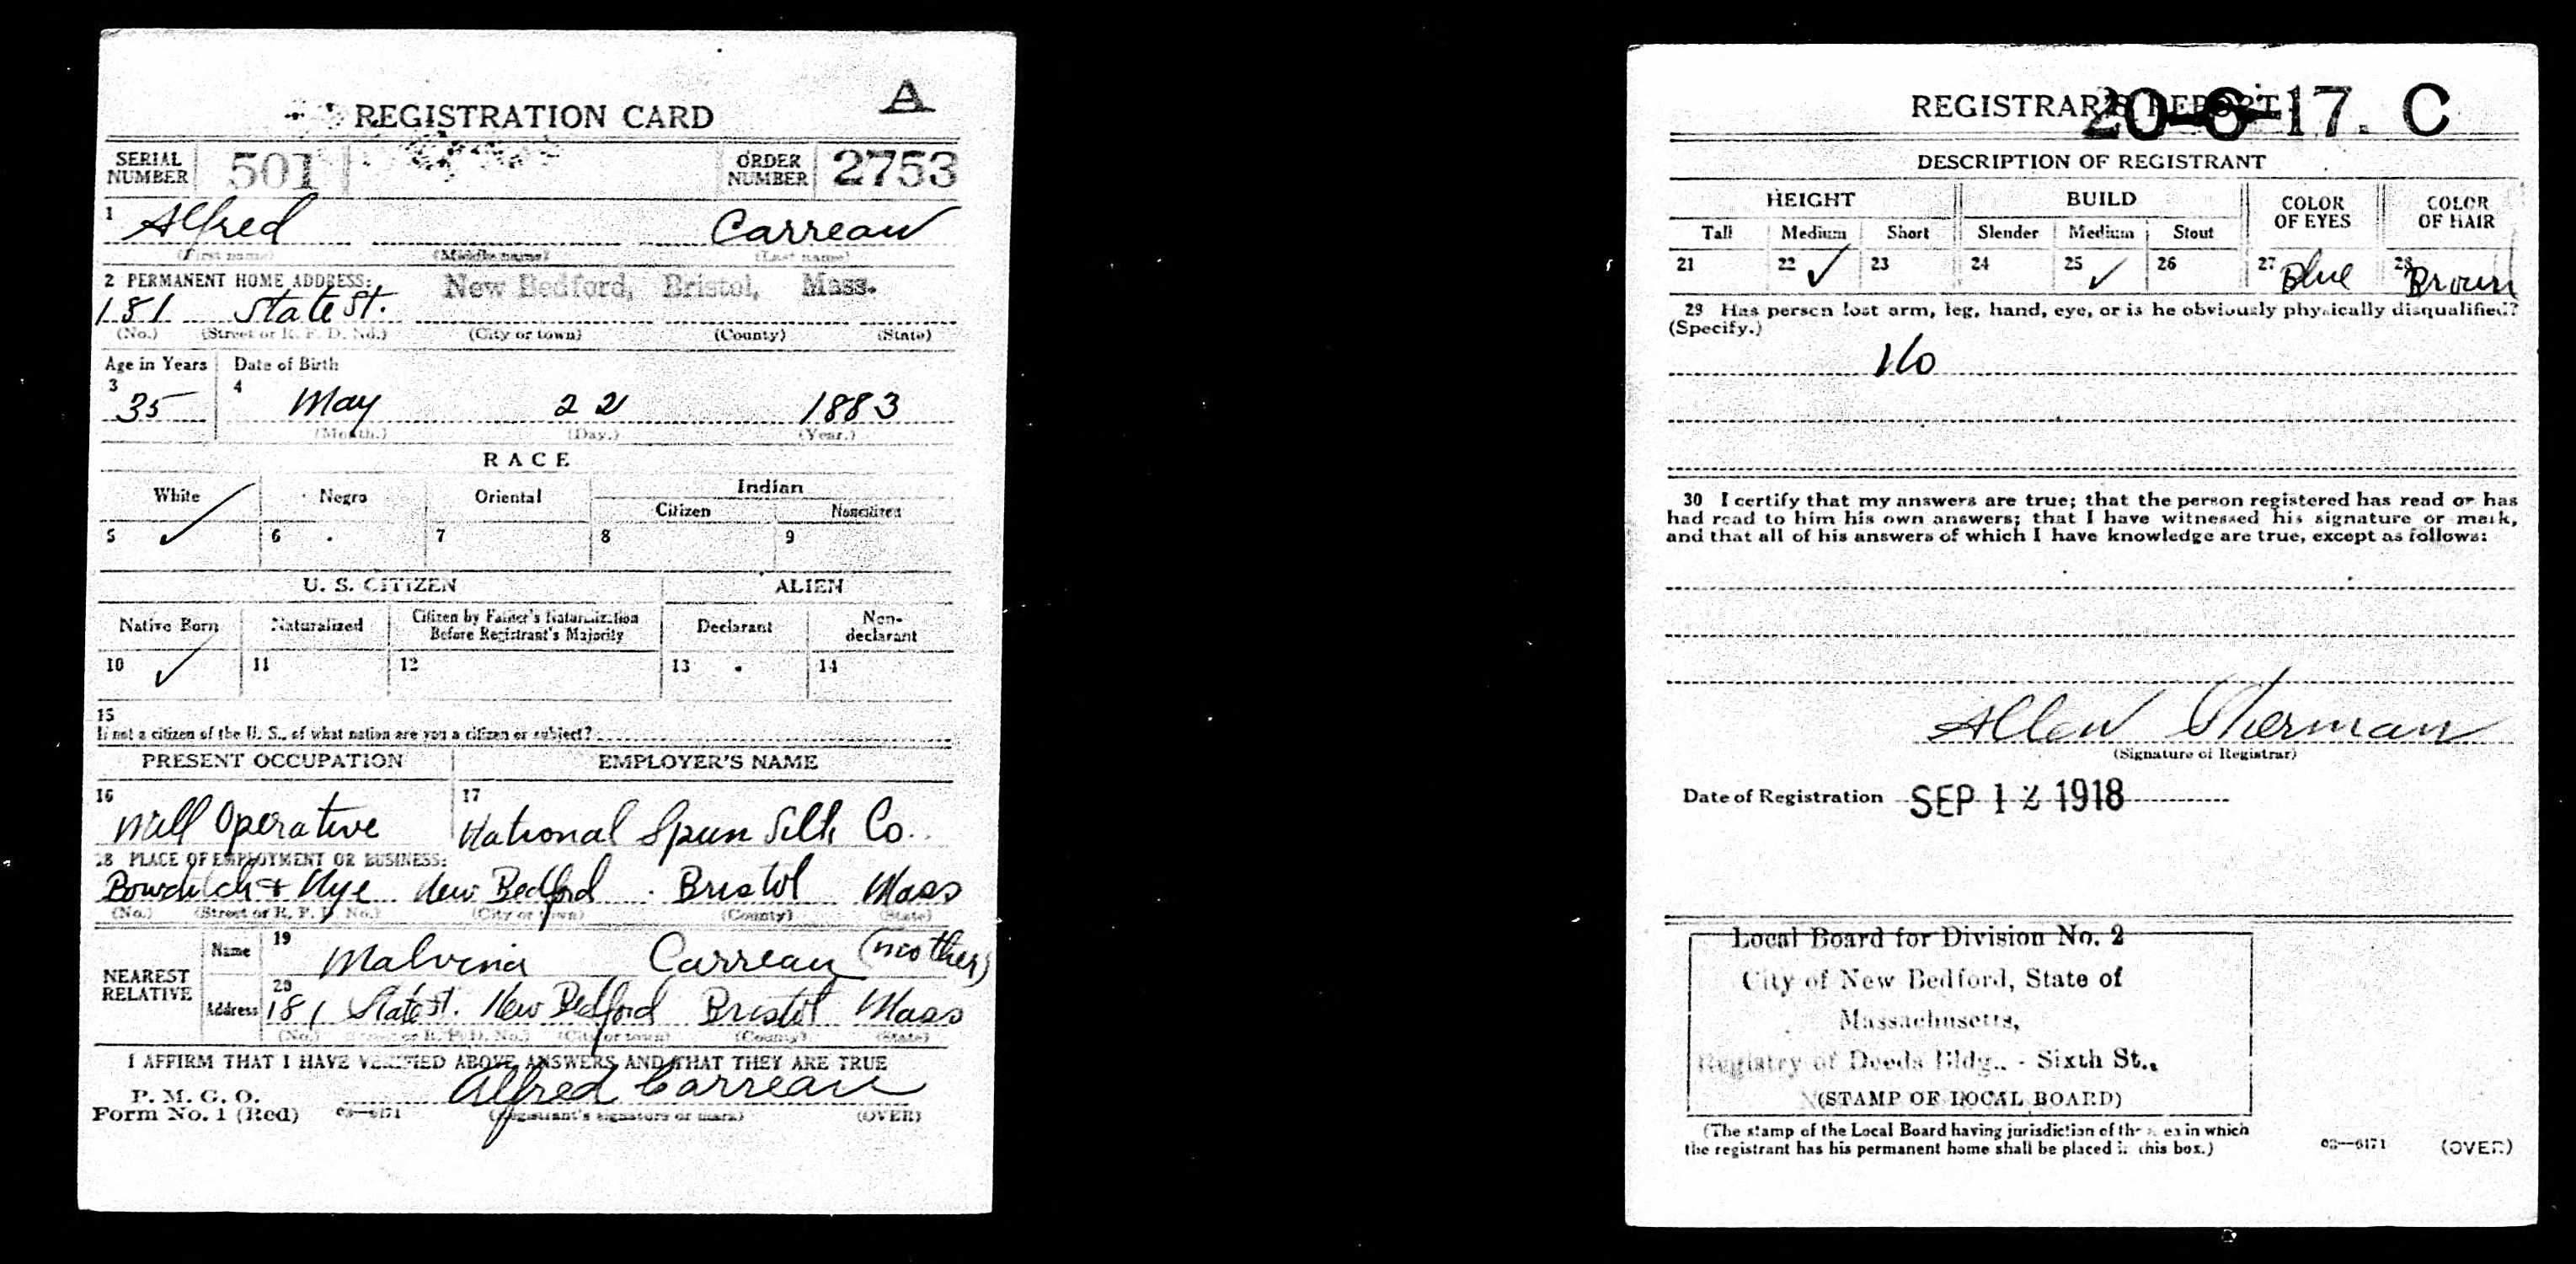 REGISTRATION CARD A
SERIAL NUMBER 501 ORDER NUMBER 2753
1 Alfred Carreau
(First name) (Middle name) (Last name)
2 PERMANENT HOME ADDRESS: New Bedford, Bristol, Mass.
181 State St.
(No.) (Street or R. F. D. No.) (City or town) (County) (State)
Age in Years Date of Birth
3 35 4 May 22 1883
(Month.) (Day.) (Year.)
RACE
White Negro Oriental Indian
Citizen Noncitizen
5 ✓ 6 7 8 9
U. S. CITIZEN ALIEN
Native Born Naturalized Citizen by Father's Naturalization Before Registrant's Majority Declarant Non-declarant
10 ✓ 11 12 13 14
15
If not a citizen of the U. S., of what nation are you a citizen or subject?
PRESENT OCCUPATION EMPLOYER'S NAME
16 Mill Operative 17 National Spun Silk Co.
18 PLACE OF EMPLOYMENT OR BUSINESS:
Bowditch & Nye New Bedford Bristol Mass
(No.) (Street or R. F. D. No.) (City or town) (County) (State)
NEAREST RELATIVE
Name 19 Malvina Carreau (mother)
Address 20 181 State St. New Bedford Bristol Mass
(No.) (Street or R. F. D. No.) (City or town) (County) (State)
I AFFIRM THAT I HAVE VERIFIED ABOVE ANSWERS AND THAT THEY ARE TRUE
P. M. G. O.
Form No. 1 (Red) 03—6171 Alfred Carreau
(Registrant's signature or mark) (OVER)
REGISTRAR'S REPORT
20-6-17. C
DESCRIPTION OF REGISTRANT
HEIGHT BUILD COLOR OF EYES COLOR OF HAIR
Tall Medium Short Slender Medium Stout
21 22 ✓ 23 24 25 ✓ 26 27 Blue 28 Brown
29 Has person lost arm, leg, hand, eye, or is he obviously physically disqualified?
(Specify.)
No
30 I certify that my answers are true; that the person registered has read or has
had read to him his own answers; that I have witnessed his signature or mark,
and that all of his answers of which I have knowledge are true, except as follows:
Allen Sherman
(Signature of Registrar)
Date of Registration SEP 12 1918
Local Board for Division No. 2
City of New Bedford, State of
Massachusetts,
Registry of Deeds Bldg., - Sixth St.,
(STAMP OF LOCAL BOARD)
(The stamp of the Local Board having jurisdiction of the area in which
the registrant has his permanent home shall be placed in this box.)
03—6171 (OVER)